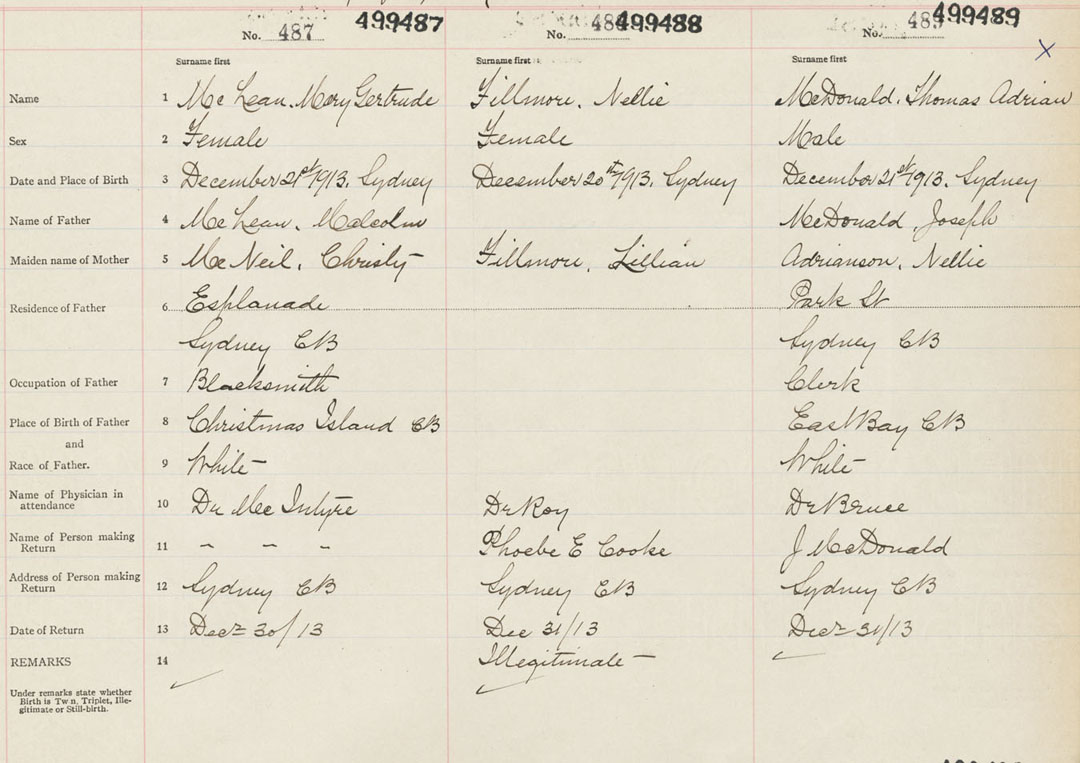 No. 487 499487 No. 488 499488 No. 489 499489
Surname first Surname first Surname first
Name 1 McLean, Mary Gertrude Fillmore, Nellie McDonald, Thomas Adrian
Sex 2 Female Female Male
Date and Place of Birth 3 December 21st 1913, Sydney December 20th 1913, Sydney December 21st 1913, Sydney
Name of Father 4 McLean, Malcolm McDonald, Joseph
Maiden name of Mother 5 McNeil, Christy Fillmore, Lillian Adrianson, Nellie
Residence of Father 6 Esplanade Park St
Sydney CB Sydney CB
Occupation of Father 7 Blacksmith Clerk
Place of Birth of Father 8 Christmas Island CB East Bay CB
and
Race of Father. 9 White White
Name of Physician in
attendance 10 Dr MacIntyre Dr Roy Dr Bruce
Name of Person making
Return 11 – – – Phoebe E Cooke J McDonald
Address of Person making
Return 12 Sydney CB Sydney CB Sydney CB
Date of Return 13 Decr 30/13 Dec 31/13 Decr 31/13
REMARKS 14 Illegitimate
Under remarks state whether
Birth is Twin, Triplet, Ille-
gitimate or Still-birth.